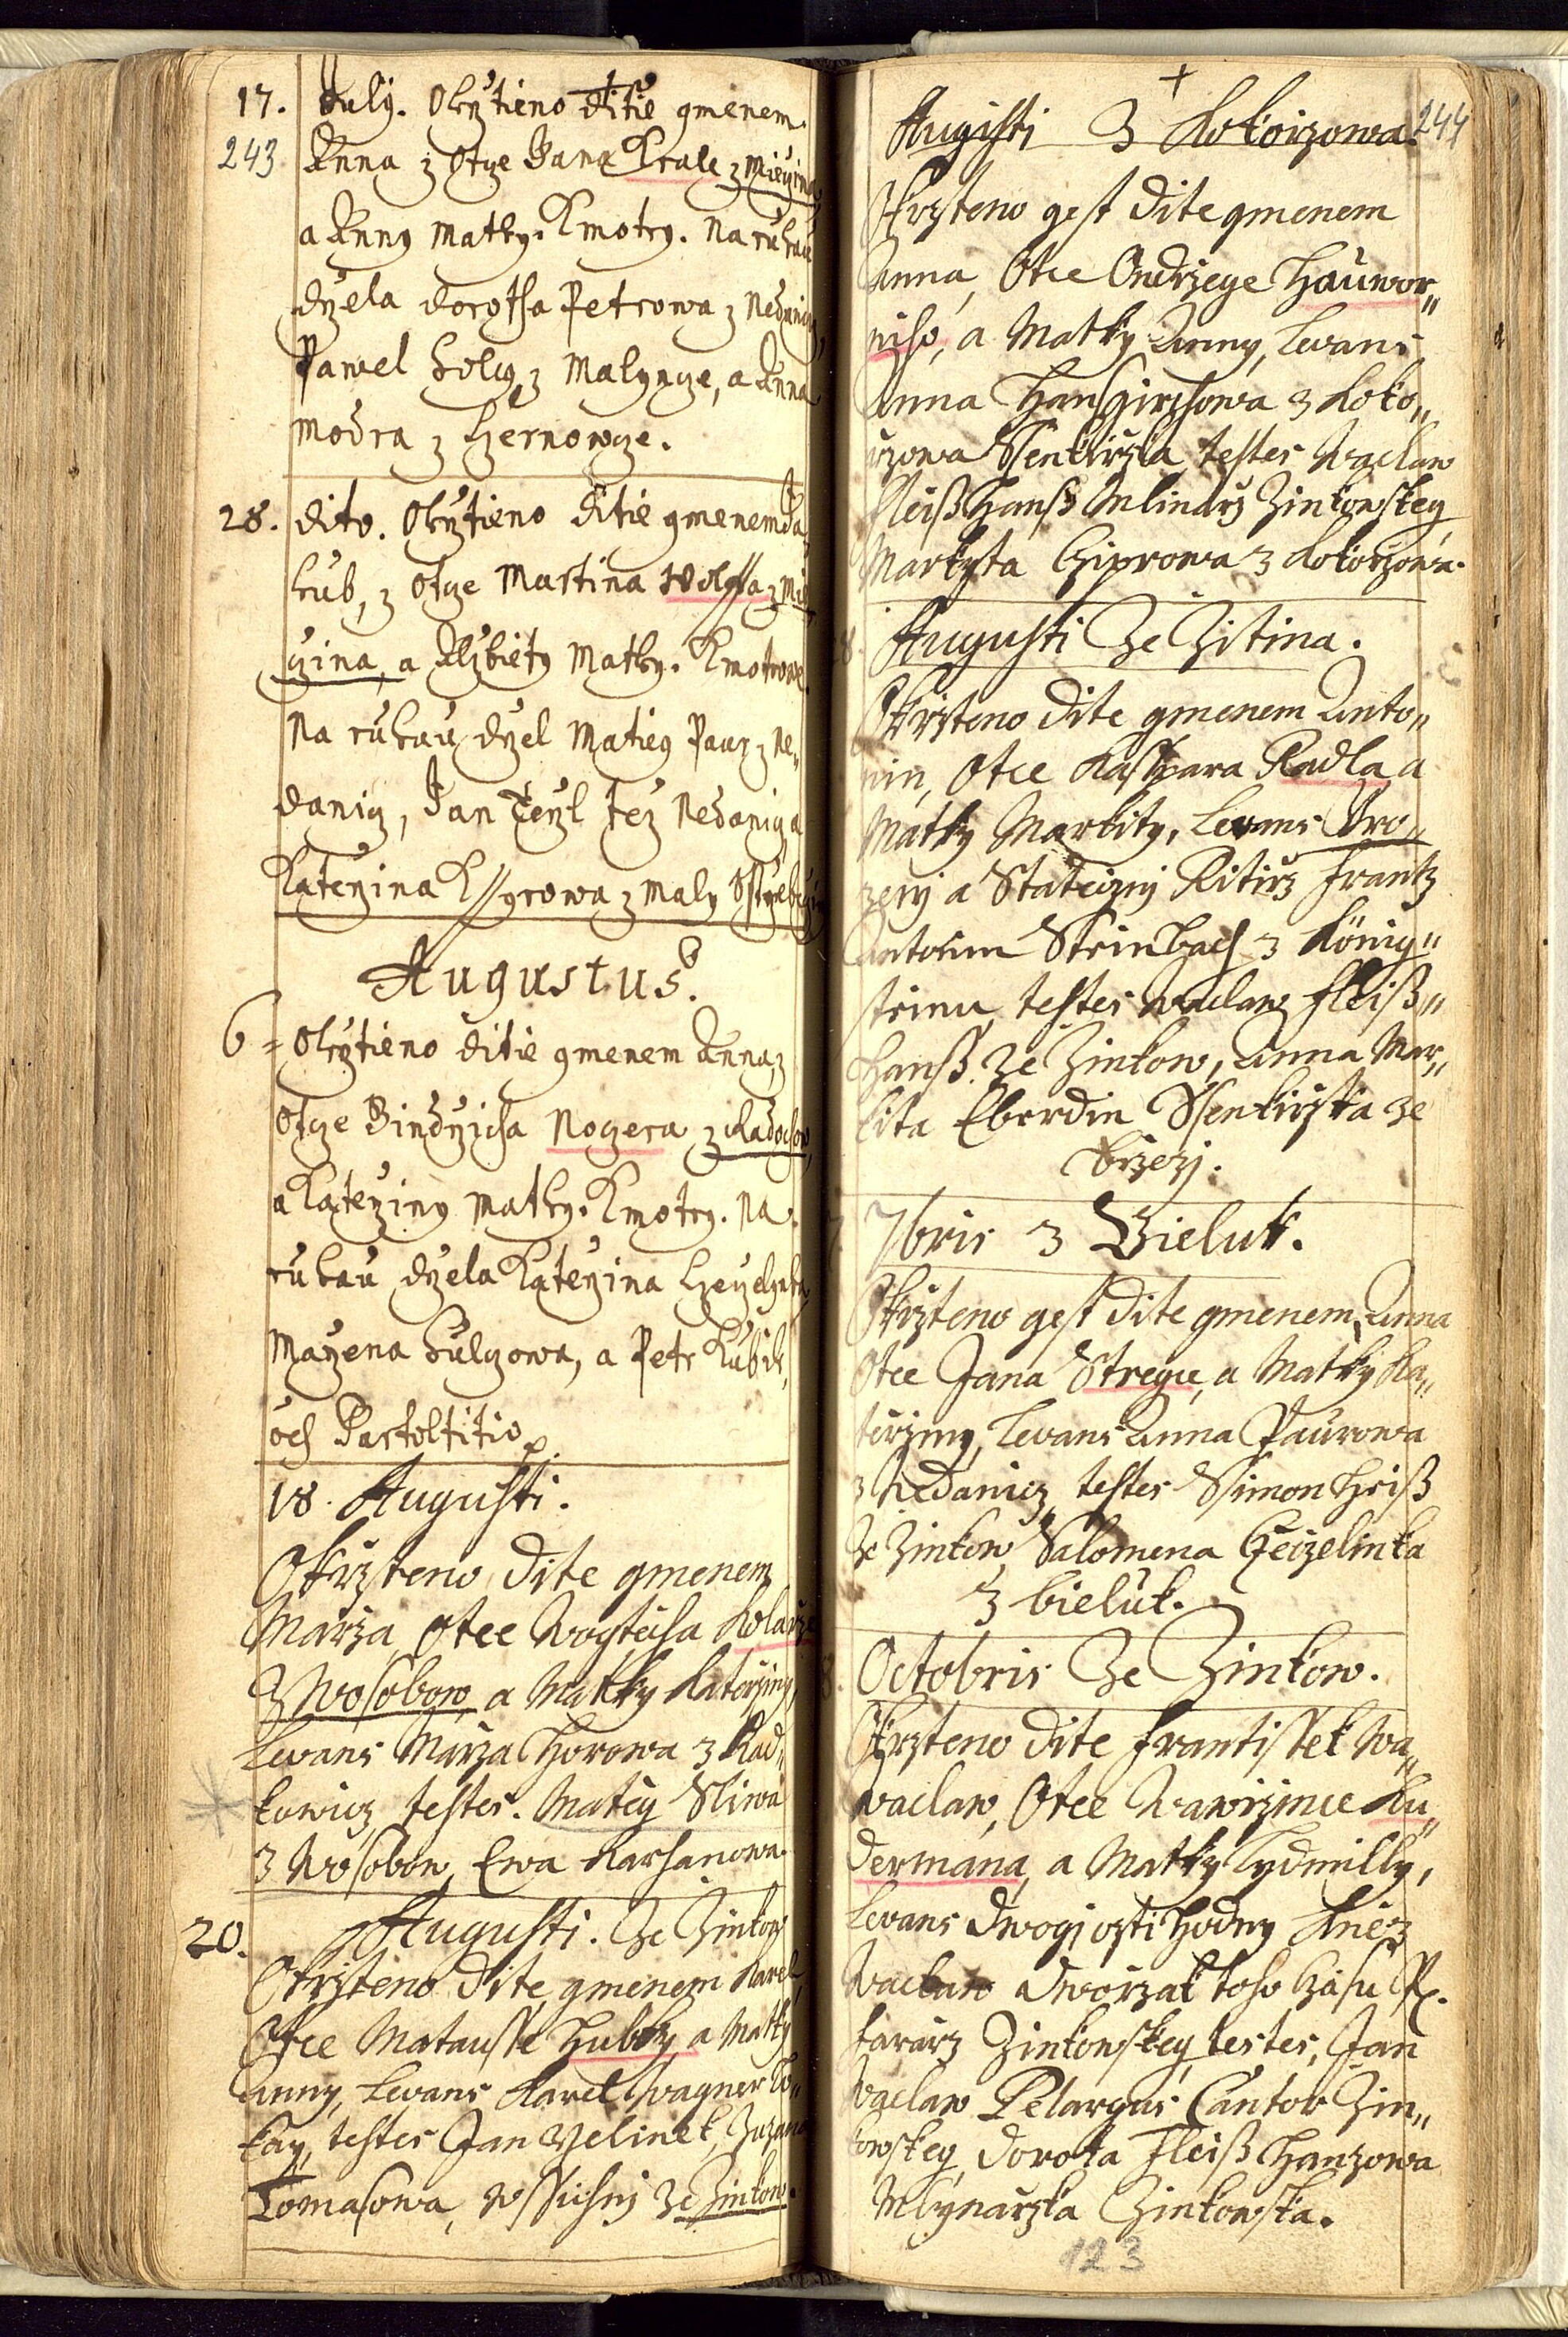 17. July. Okrztieno ditie gmenem
243 Anna z Otcze Jana Krale z Mieczina
a Anny Matky. Kmotrz. Na rukau
drzela Dorotha Petrowa z Nedanicz,
Pawel z Malyncze, a Anna
Modra z Czernowcze.
28. dito. Okrztieno ditie gmenem Ja
kub, z Otcze Martina z Mie
czina, a Alzbiety Matky. Kmotrowe
Na rukau drzel Matieg Paur z Ne„
danicz, Jan też Nedanicz, a
Katerzina z Maly
Augustus.
6 = Okrztieno ditie gmenem Anna, z
Otcze Jindrzicha Nogera z Radochow,
a Katerziny Matky. Kmotrz. Na
rukau drzela Katerzina
Marzena, a Petr Kubik,
18. Augusti.
Okrzsteno dite gmenem
Marza, Otce Wogtecha Kolarze
z Wosobow, a Matky Katerziny,
Levans Marza Horowa z Rad„
kowicz, testes. Mateg Sliwa
z Wosobow, Ewa Karhanowa.
20. Augusti. Ze Zinkow
Okrzsteno dite gmenem Karel,
Otce Matausse Hubky, a Matky
Anny, Levans Karel Wagner Lo„
kay, testes Jan Jelinek, Zuzana
Tomasowa, wssichni ze Zinkow.
Augusti z Kokorzowa. 244
Okrzsteno gest dite gmenem
Anna, Otce Ondrzege Hauwor„
niho, a Matky Anny, Levans
Anna Hansgirzhowa z Koko„
rzowa Ssenkirzka, testes Waclaw
Fleiß Hanß Mlinarz Zinkowskey
Markyta Cziprowa z Kokorzowa.
28. Augusti Ze Zitina.
Okrzsteno dite gmenem Anto„
nin, Otce Kasspara Radla a
Matky Markity, Levans Uro„
zeny a Stateczny Ritirz Frantz
Antonin Steinbach z König„
steinu, testes Waclaw Fleiß„
hanß Ze Zinkow, Anna Mar„
kita Eberdin Ssenkirzka ze
Brzezj.
7. 7bris z Bieluk.
Okrzsteno gest dite gmenem Anna
Otce Jana Streyce, a Matky Ka„
terziny, Levans Anna Paurowa
z Nedanicz, testes Ssimon Hriß
Ze Zinkow, Salomena Czeizelinka
z Bieluk.
8. Octobris Ze Zinkow.
Okrzsteno dite Frantissek Wa„
waclaw, Otce Wawrzince Ku„
dermana, a Matky Lydmilly,
Levans Dwogj czti Hodny Kniez
Waclaw Dworzak toho Czasu Pr.
Fararz Zinkowskey, testes, Jan
Waclaw Pelargus Cantor Zin„
kowskey, Dorota Fleiß Hanzowa
Mlynarzka Zinkowska.
123